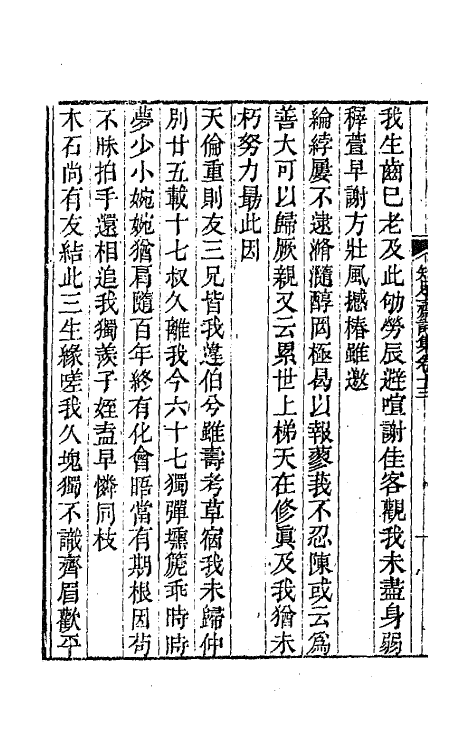 我生齒已老及此劬勞辰避喧謝佳客觀我未盡身弱
稺萱早謝方壯風撼椿雖邀
綸綍屢不逮滫瀡醇罔極曷以報蓼莪不忍陳或云爲
善大可以歸厥親又云累世上梯天在修眞及我猶未
朽努力勗此因
天倫重則友三兄皆我逢伯兮雖壽考草宿我未歸仲
別廿五載十七叔久離我今六十七獨彈壎篪乖時時
夢少小婉婉猶肩隨百年終有化會晤當有期根因茍
不昧拍手還相追我獨羨子姪盍早憐同枝
木石尚有友結此三生緣嗟我久塊獨不識齊眉歡平
齋詩集卷十三